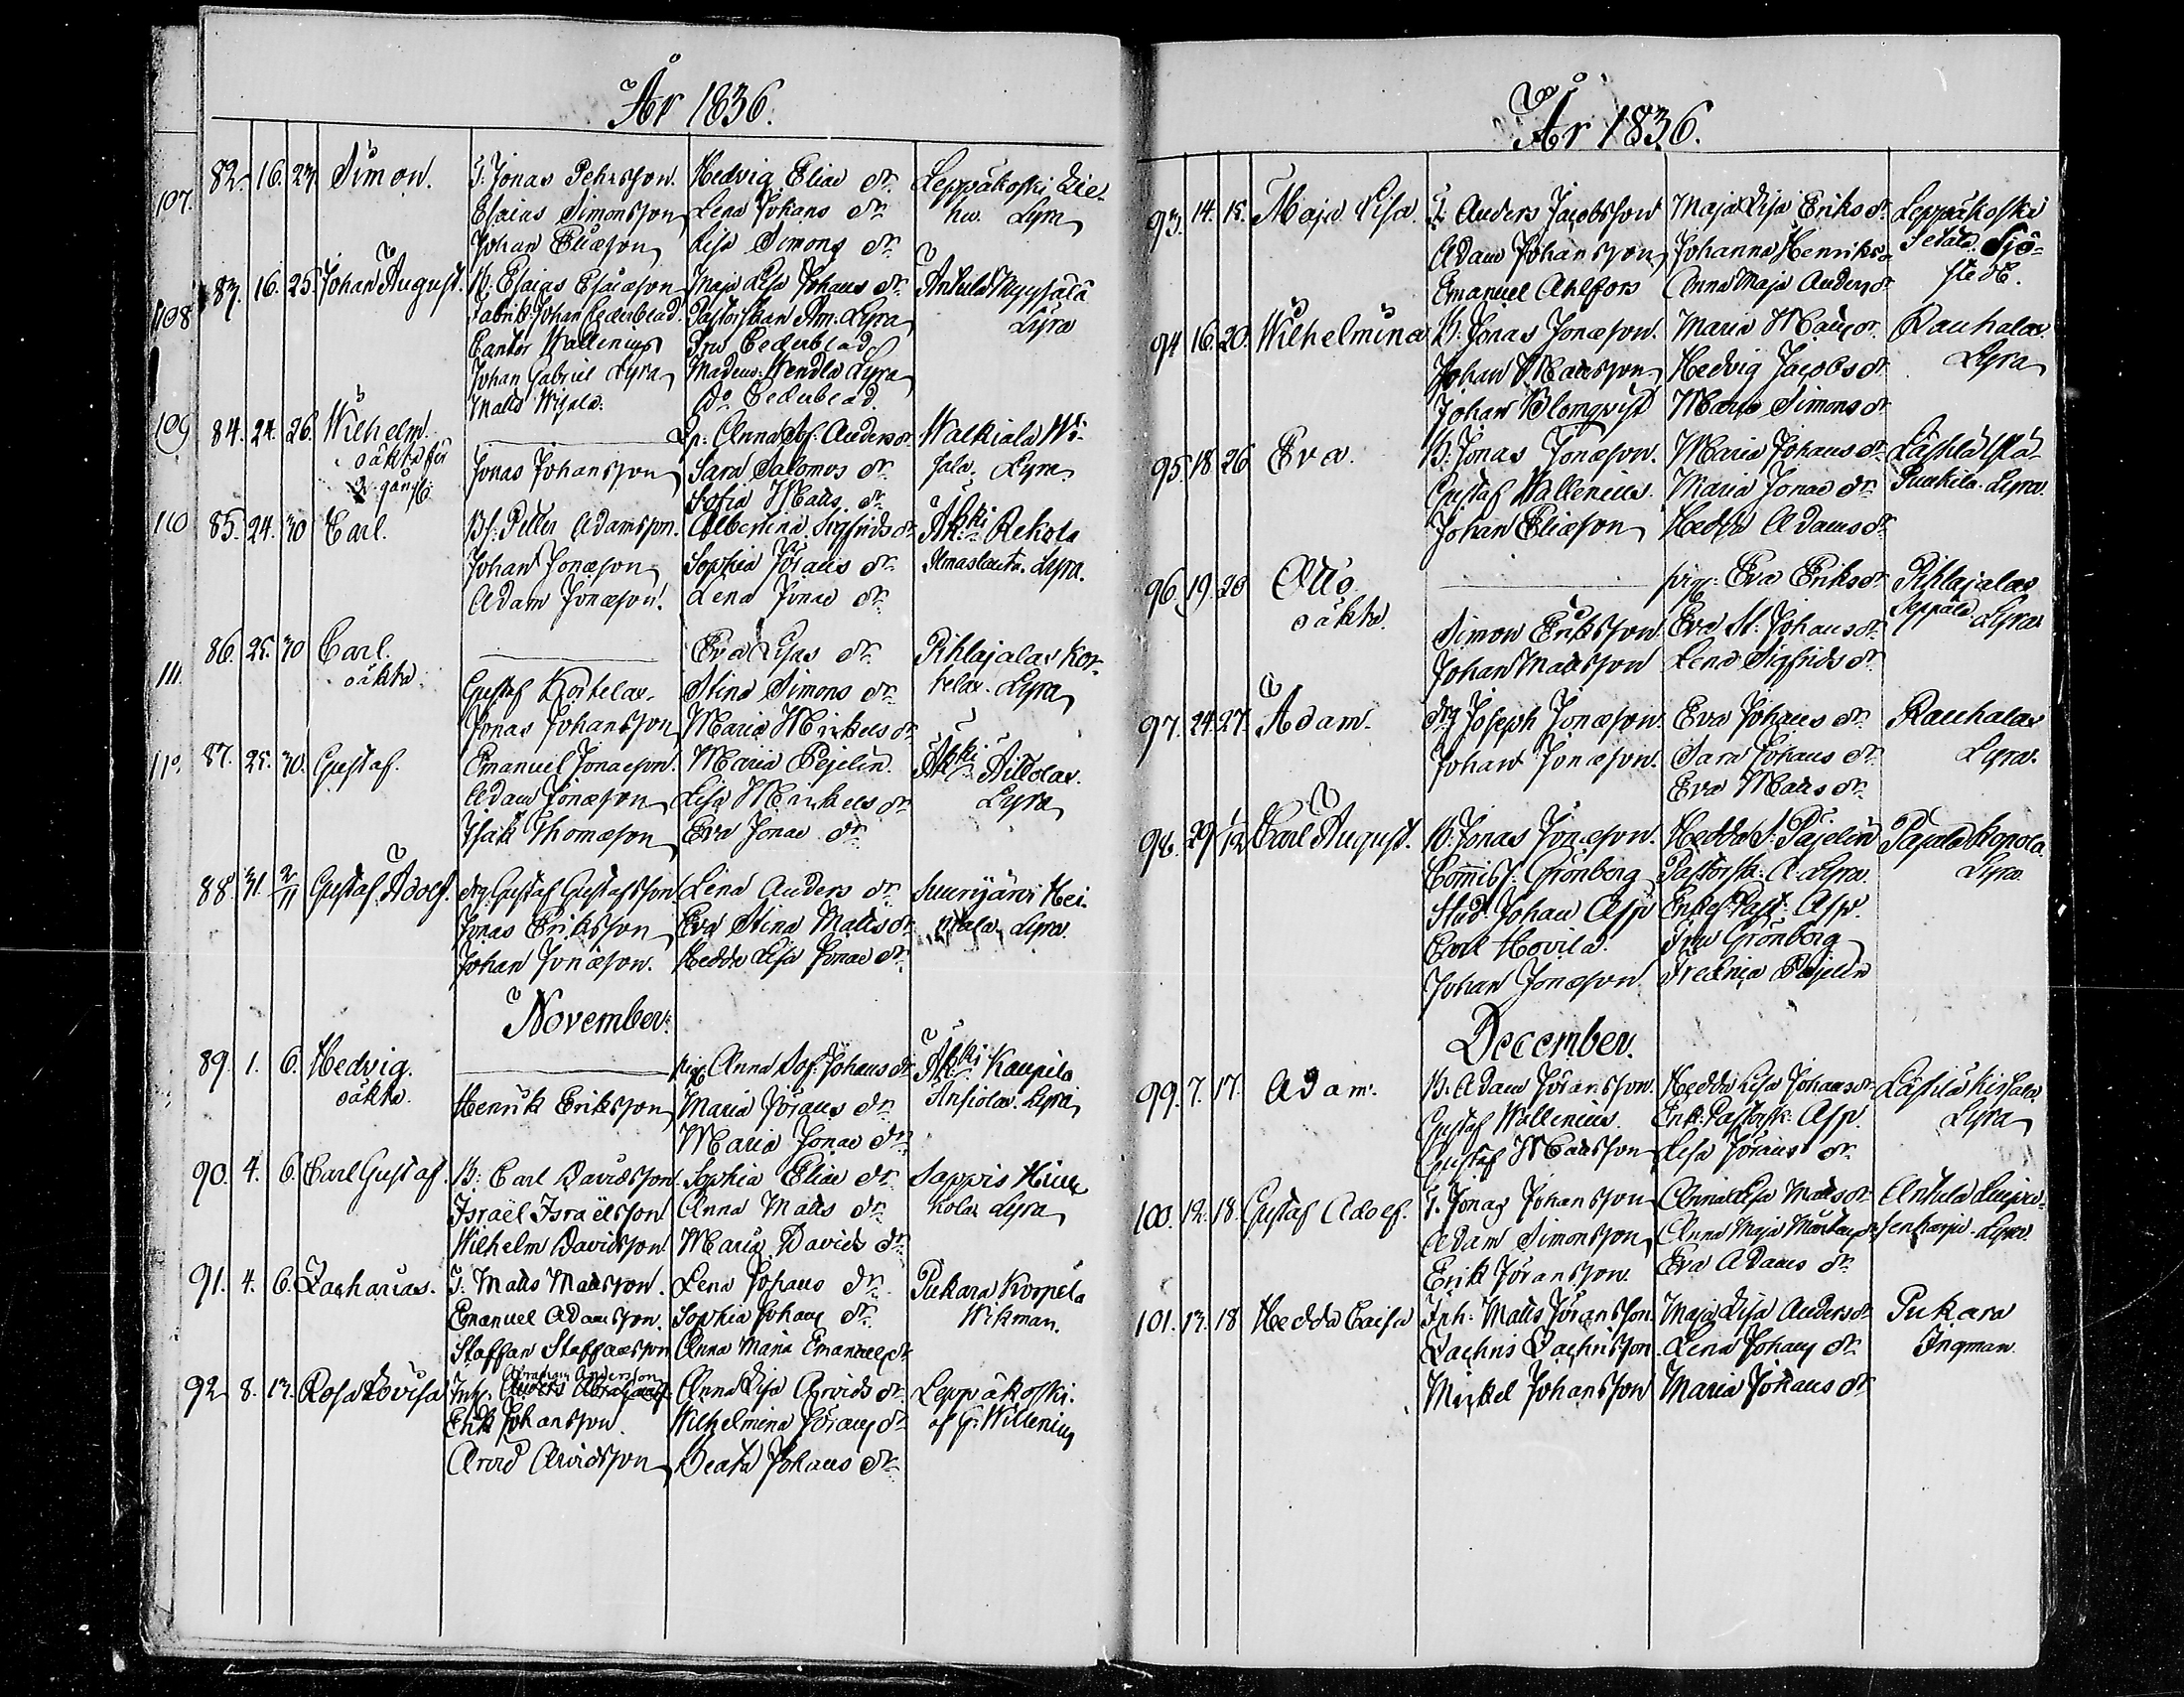 År 1836.
82. 16. 23 Simon. T. Jonas Pehrsson. Hedvig Eliae dr. Leppäkoski Lie-
107. Esaias Simonsson Lena Johans dr. hu. Lyra
Johan Eliæson Lisa Simons dr.
83. 16. 25. Johan August. B. Esaias Esaiæson Maja Lisa Johans dr. Antula
108 Fabrik: Johan Cederblad. Pastorskan Am: Lyra Lyra
Cantor Wallenius Fru Cederblad
Johan Gabriel Lyra Madem: Wendla Lyra
Matts Wisala. Do Cederblad.
109 84. 24. 26. Wilhelm. Anna Sof: Anders dr. Walkiala Wi-
oäkta för Jonas Johansson Sara Salomos dr. sala. Lyra
2 gång: Sofia Matts dr.
110 85. 24. 30 Carl. Petter Adamsson. Albertina Sigfrids dr. Ah:ki Rekola
Johan Jonæson Sophia Jörans dr. Lyra.
Adam Jonæson. Lena Jonae dr.
86. 25. 30 Carl. Eva Lisas dr. Pihlajalax Kor-
111. oäkta. Gustaf Kortelax. Stina Simons dr. telax. Lyra
Jonas Johansson Maria Mickels dr.
87. 25. 30. Gustaf. Emanuel Jonaeson. Maria Pejelin. Ah:ki
Adam Jonæson Lisa Mickels dr. Lyra
Isak Thomæson Eva Jonae dr.
88. 31. 2/11 Gustaf Adolf. drg. Gustaf Gustafsson. Lena Anders dr. Suurijärvi Hei-
Jonas Eriksson Eva Stina Matts dr. Lyra.
Johan Jonæson. Hedda Lisa Jonae dr.
November.
89. 1. 6. Hedvig. pig. Anna Sof. Johans dr. Ah:ki Kaupila
oäkta. Henrik Eriksson Maria Jörans dr. Ansiolax. Lyra
Maria Jonae dr.
90. 4. 6. Carl Gustaf. B: Carl Davidsson. Sophia Eliae dr. Sappis
Israël Israëlsson Anna Matts dr. Lyra
Wilhelm Davidsson. Maria Davids dr.
91. 4. 6. Zacharias. T. Matts Mattsson. Lena Johans dr. Pukara Korpela
Emanuel Adamsson. Sophia Johans dr. Wikman.
Staffan Staffansson Anna Maria Emanuels dr.
Abraham Andersson
92 8. 13. Rosa Lovisa Inh. Anna Lisa Arvids dr. Leppäkoski.
Erik Johansson. Wilhelmina Jörans dr. af G. Willenius
Arvid Arvidsson Beata Johans dr.
År 1836.
93. 14. 15. Maja Lisa. T. Anders Jacobsson Maja Lisa Eriks dr. Leppäkoski
Adam Johansson Johanna Henriks dr. Setälä. Sjö-
Emanuel Ahlfors Anna Maja Anders dr. stedt.
94 16. 20. Wilhelmina B: Jonas Jonæson. Maria Matts dr. Rauhalax
Johan Mattsson Hedvig Jacobs dr. Lyra
Johan Blomqvist Maria Simons dr.
95. 18. 26 Eva. B: Jonas Jonæson. Maria Johans dr. Lässilä
Gustaf Wallenius. Maria Jonae dr. Lyra.
Johan Eliæson Hedda Adams dr.
96. 19. 20 Otto pig: Eva Eriks dr. Pihlajalax
oäkta. Simon Eriksson. Eva St. Johans dr. Seppälä Lyra
Johan Mattsson Lena Sigfrids dr.
97. 24. 27. Adam. drg Joseph Jonæson. Eva Johans dr. Rauhalax
Johan Jonæson. Sara Johans dr. Lyra.
Eva Matts dr.
98. 29 Carl August. B. Jonas Jonæson. Hedda S. Pajelin Pajula Kopola.
Commiss: Grönberg Pastorsk: A. Lyra. Lyra
Stud: Johan Asp Enkef. Past: Asp.
Hovila. Fru Grönberg
Johan Jonæson
December.
99. 7. 17. Adam. B. Adam Jöransson. Hedda Lisa Johans dr. Lässilä
Gustaf Wallenius. Enk: Pastorsk: Asp. Lyra
Gustaf Mattsson Lisa Jörans dr.
100. 12. 18. Gustaf Adolf. T. Jonas Johansson Anna Lisa Matts dr. Antula
Adam Simonsson Anna Maja Lyra.
Erik Jöransson. Eva Adams dr.
101. 13. 18 Hedda Caisa Inh: Matts Jöransson. Maja Lisa Anders dr. Pukara
Zachris Zachrisson. Lena Johans dr. Ingman.
Mickel Johansson Maria Johans dr.